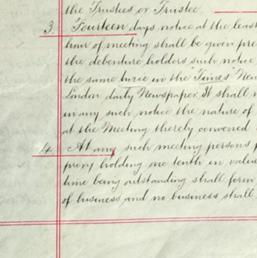 the Trustees or Trustee
3. Fourteen days notice at the least
hour of meeting shall be given pre
the debenture holders such notice
the same twice in the "Times" New
London daily Newspaper. It shall n
in any such notice the nature of
at the Meeting thereby convened
4. At any such meeting persons p
proxy holding one tenth in value
time being outstanding shall form
of business and no business shall